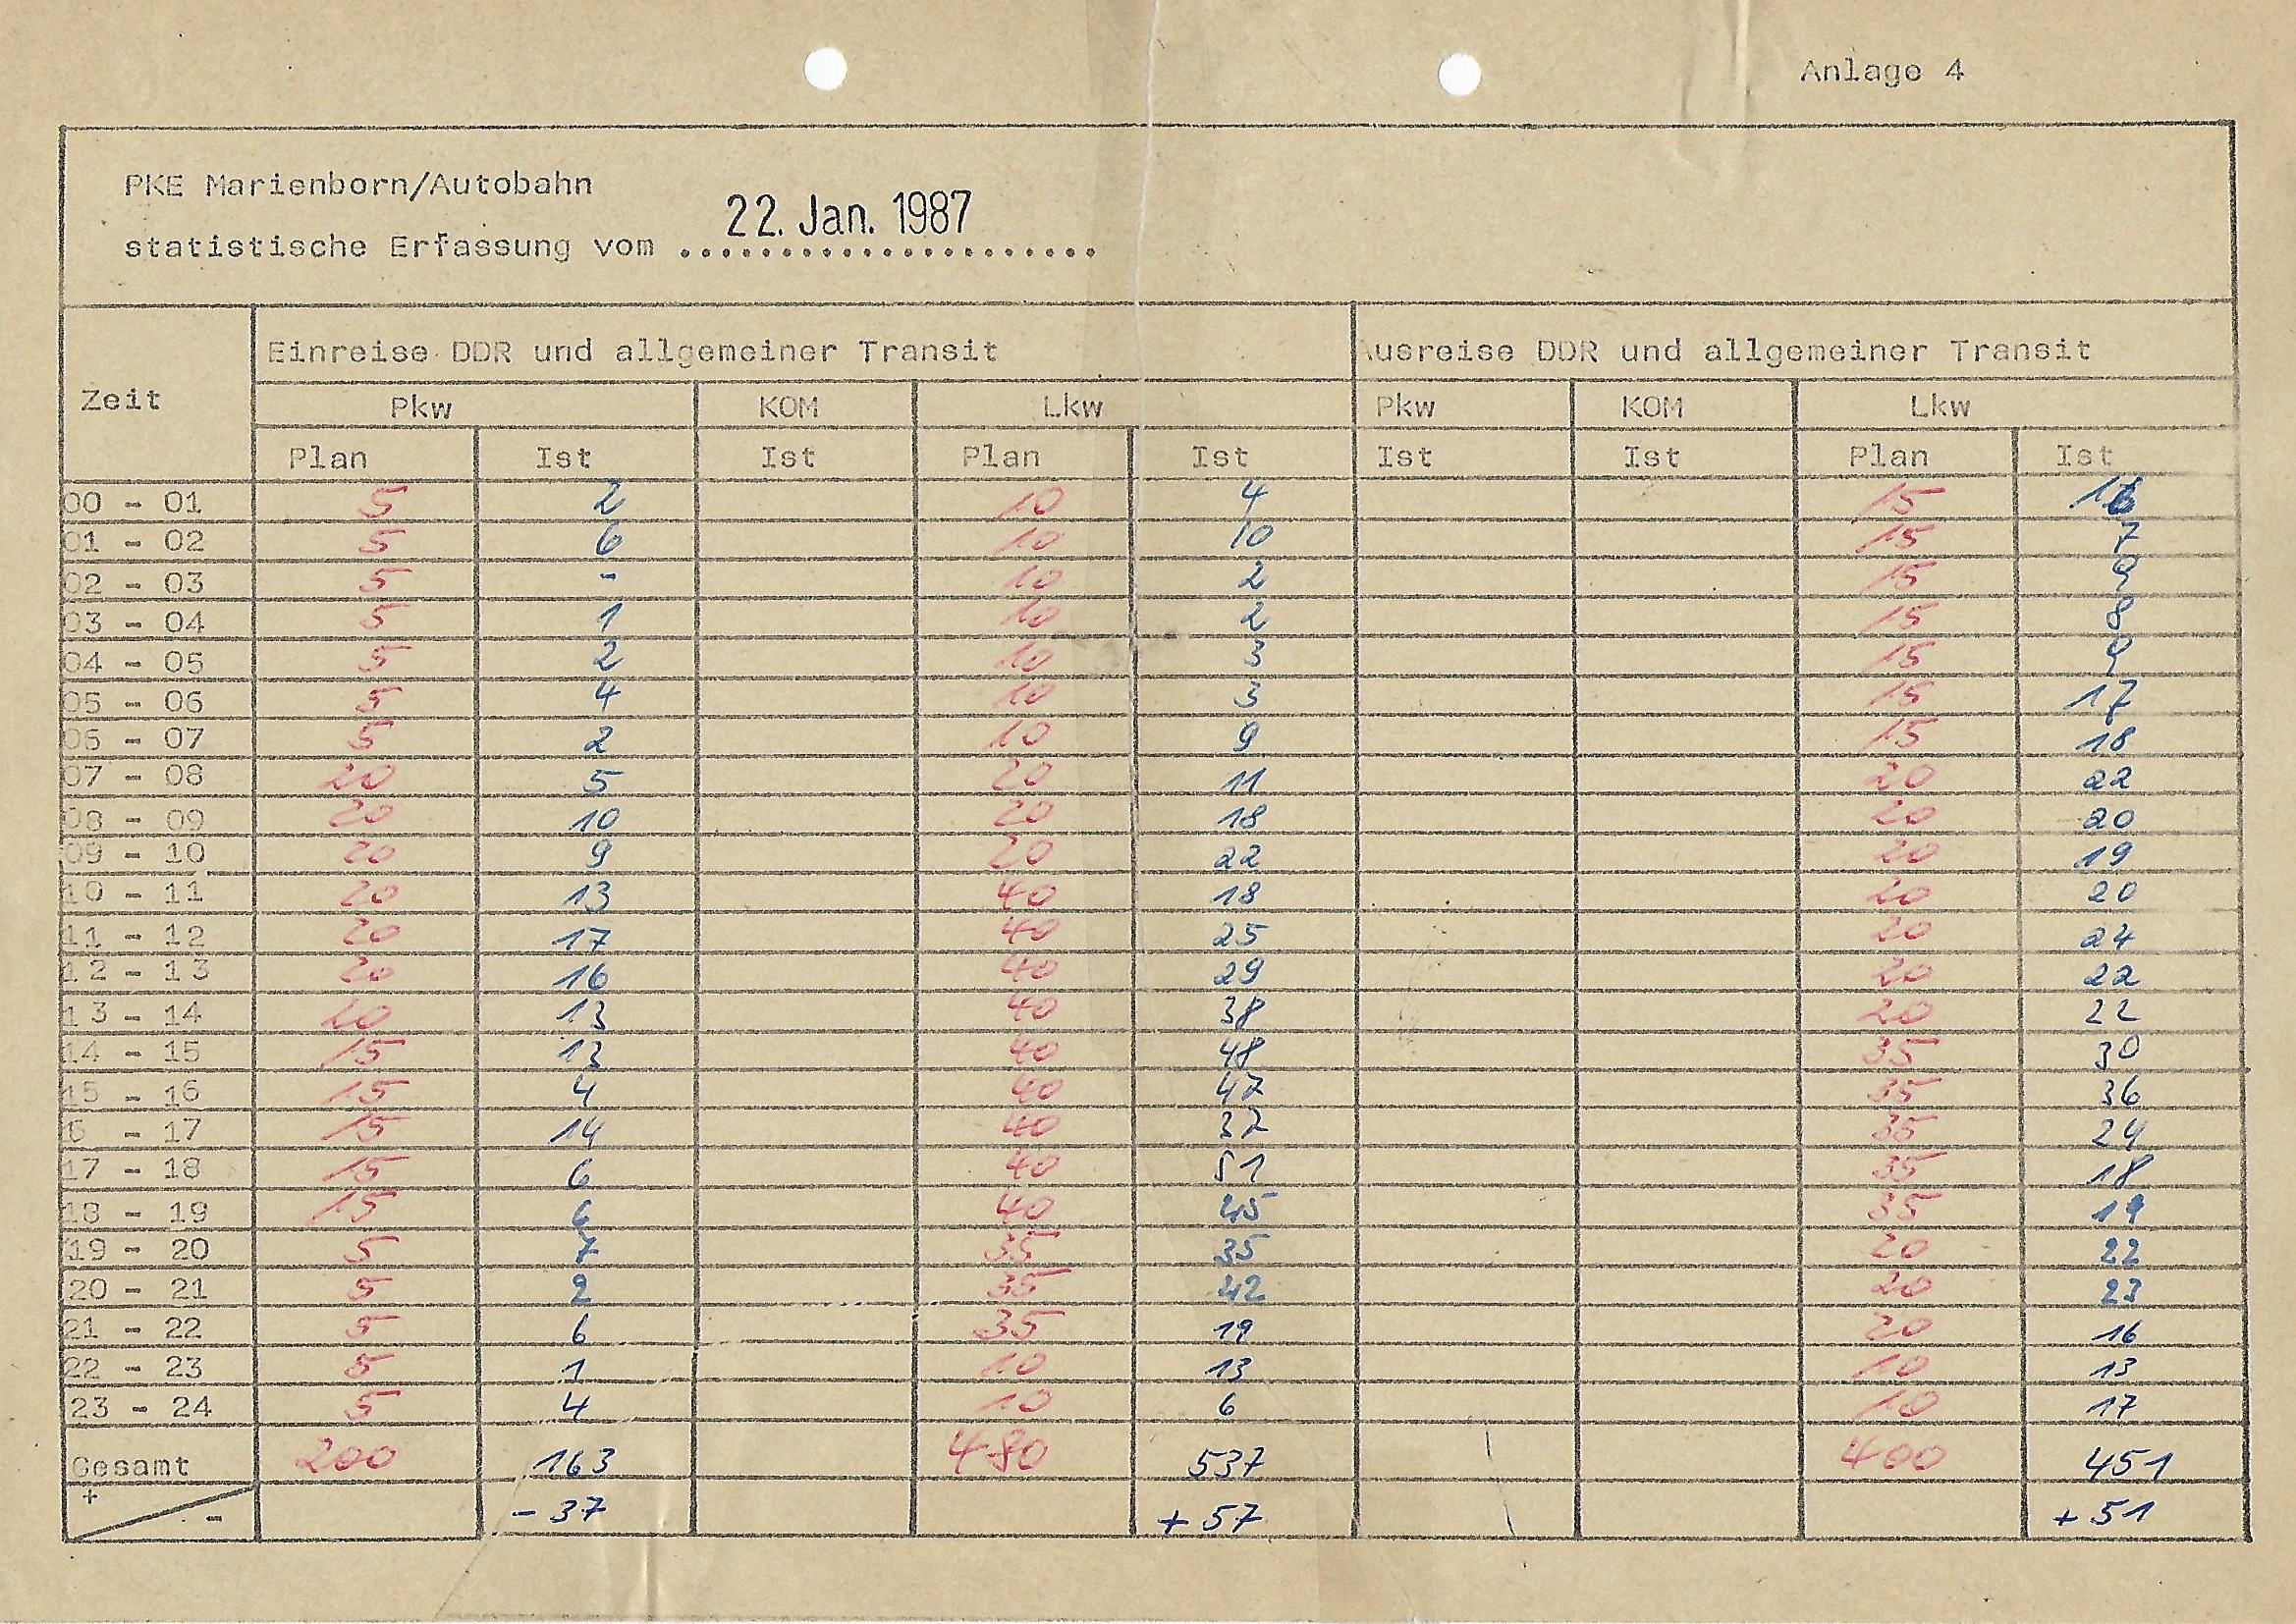 Anlage 4
PKE Marienborn/Autobahn
22. Jan. 1987
statistische Erfassung vom .....................
Zeit
Einreise DDR und allgemeiner Transit
Ausreise DDR und allgemeiner Transit
Pkw KOM Lkw Pkw KOM Lkw
Plan Ist Ist Plan Ist Ist Ist Plan Ist
00 - 01 5 2 10 4 15 16
01 - 02 5 6 10 10 15 7
02 - 03 5 - 10 2 15 9
03 - 04 5 1 10 2 15 8
04 - 05 5 2 10 3 15 9
05 - 06 5 4 10 3 15 17
06 - 07 5 2 10 9 15 18
07 - 08 20 5 20 11 20 22
08 - 09 20 10 20 18 20 20
09 - 10 20 9 20 22 20 19
10 - 11 20 13 40 18 20 20
11 - 12 20 17 40 25 20 24
12 - 13 20 16 40 29 20 22
13 - 14 10 13 40 38 20 22
14 - 15 15 13 40 48 35 30
15 - 16 15 4 40 47 35 36
6 - 17 15 14 40 37 35 24
17 - 18 15 6 40 51 35 18
18 - 19 15 6 40 45 35 19
19 - 20 5 7 35 35 20 22
20 - 21 5 2 35 42 20 23
21 - 22 5 6 35 19 20 16
22 - 23 5 1 10 13 10 13
23 - 24 5 4 10 6 10 17
Gesamt 200 163 480 537 400 451
+ - - 37 + 57 + 51